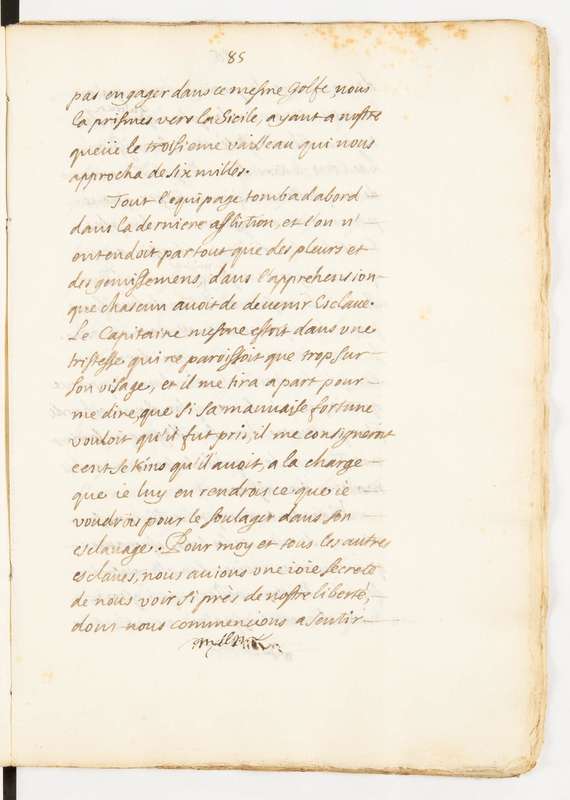 85
pas engager dans ce mesme Golfe, nous
la prismes vers la Sicile, ayant a nostre
queüe le troisieme vaisseau qui nous
approcha de six milles.
Tout l'equipage tomba d'abord
dans la derniere affliction, et l'on n'
entendoit partout que des pleurs et
des gemissemens, dans l'apprehension
que chascun avoit de devenir Esclave.
Le Capitaine mesme estoit dans vne
tristesse qui ne paroissoit que trop sur
son visage, et il me tira a part pour
me dire, que si sa mauuaise fortune
vouloit qu'il fut pris, il me consigneroit
cent sekins qu'il avoit, a la charge
que ie luy en rendrois ce que ie
voudrois pour le soulager dans son
esclauage. Pour moy et tous les autres
esclaues, nous auions vne ioie secrete
de nous voir si près de nostre liberté,
dont nous commencions a sentir